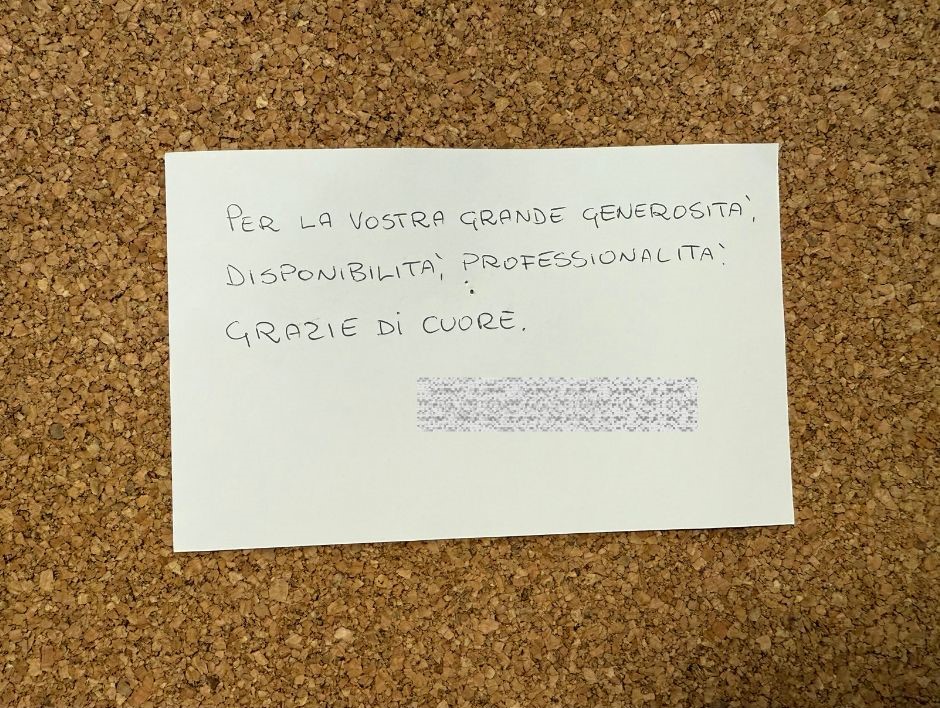 PER LA VOSTRA GRANDE GENEROSITA',
DISPONIBILITA', PROFESSIONALITA'.
GRAZIE DI CUORE.